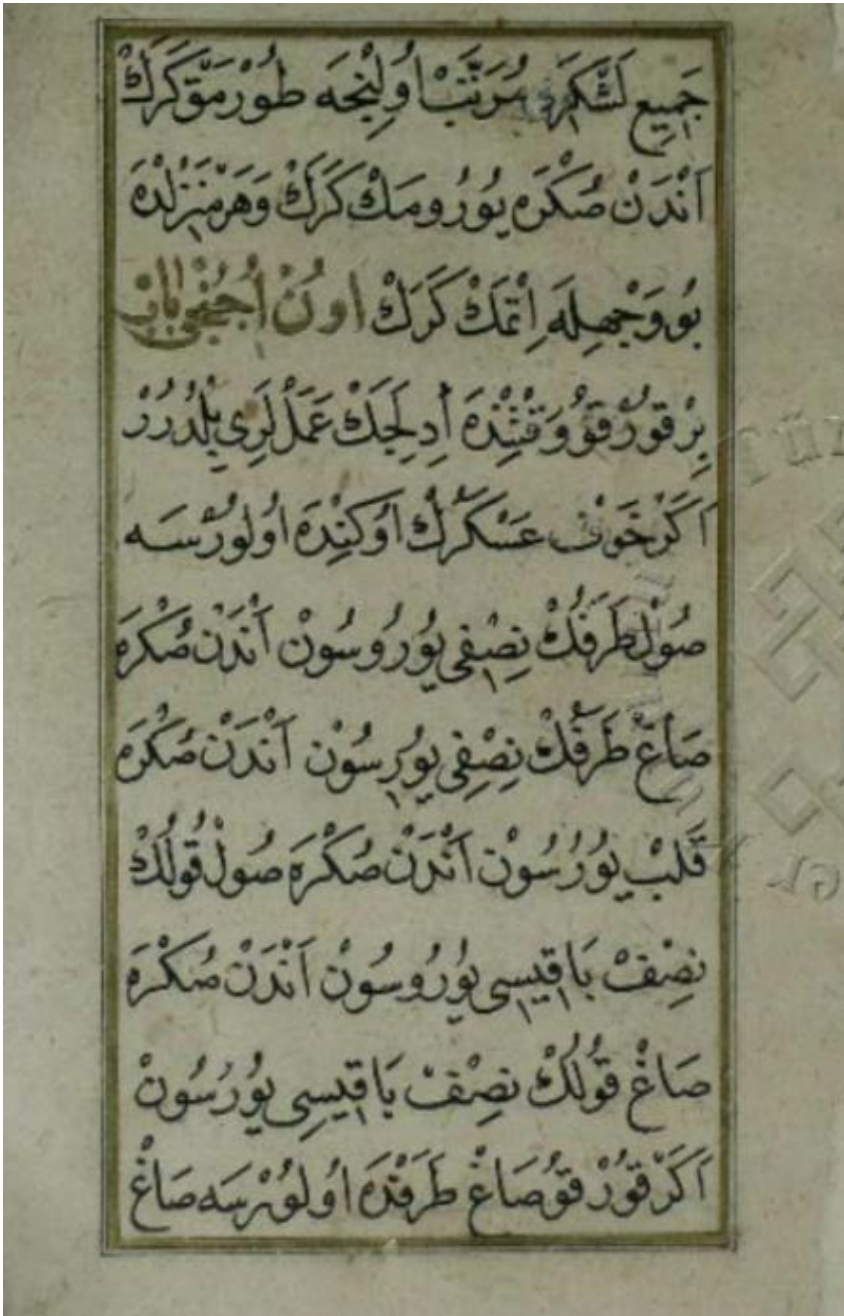 جَمِيعِ لَشْكَرِكْ مُرَتَّبْ اُولِنْجَه طُورْمَقْ كَرَكْ
اَنْدَنْ صُكْرَه يُورُومَكْ كَرَكْ وَهَرْ مَنْزِلْدَه
بُو وَجْهِلَه اِتْمَكْ كَرَكْ اونْ اُجُنْجِى بَابْ
بِرْ قورْقُو وَقْتِنْدَه اِدِلَجَكْ عَمَلْلَرِى بِلْدُرُرْ
اَكَرْ خَوْف عَسْكَرِكْ اوُكِنْدَه اوُلوُرْسَه
صُولْ طَرَفُكْ نِصْفِى يُورُوسُونْ اَنْدَنْ صُكْرَه
صَاغْ طَرَفُكْ نِصْفِى يوُرِسُونْ اَنْدَنْ صُكْرَه
قَلْبْ يوُرُسُونْ اَنْدَنْ صُكْرَه صُولْ قُولُكْ
نِصْفْ بَاقِيسِى يوُرُوسُونْ اَنْدَنْ صُكْرَه
صَاغْ قُولُكْ نِصْفْ بَاقِيسِى يوُرُسُونْ
اَكَرْ قوُرْقوُ صَاغْ طَرَفْدَه اوُلوُرْسَه صَاغْ